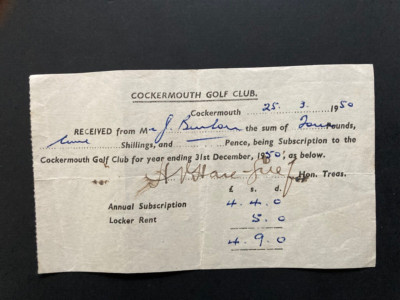 COCKERMOUTH GOLF CLUB.
Cockermouth 25. 3. 1950
RECEIVED from Mr J. the sum of Four Pounds,
nine Shillings, and — Pence, being Subscription to the
Cockermouth Golf Club for year ending 31st December, 1950, as below.
Hon. Treas.
£ s. d.
Annual Subscription 4 4. 0
Locker Rent 5. 0
4. 9. 0